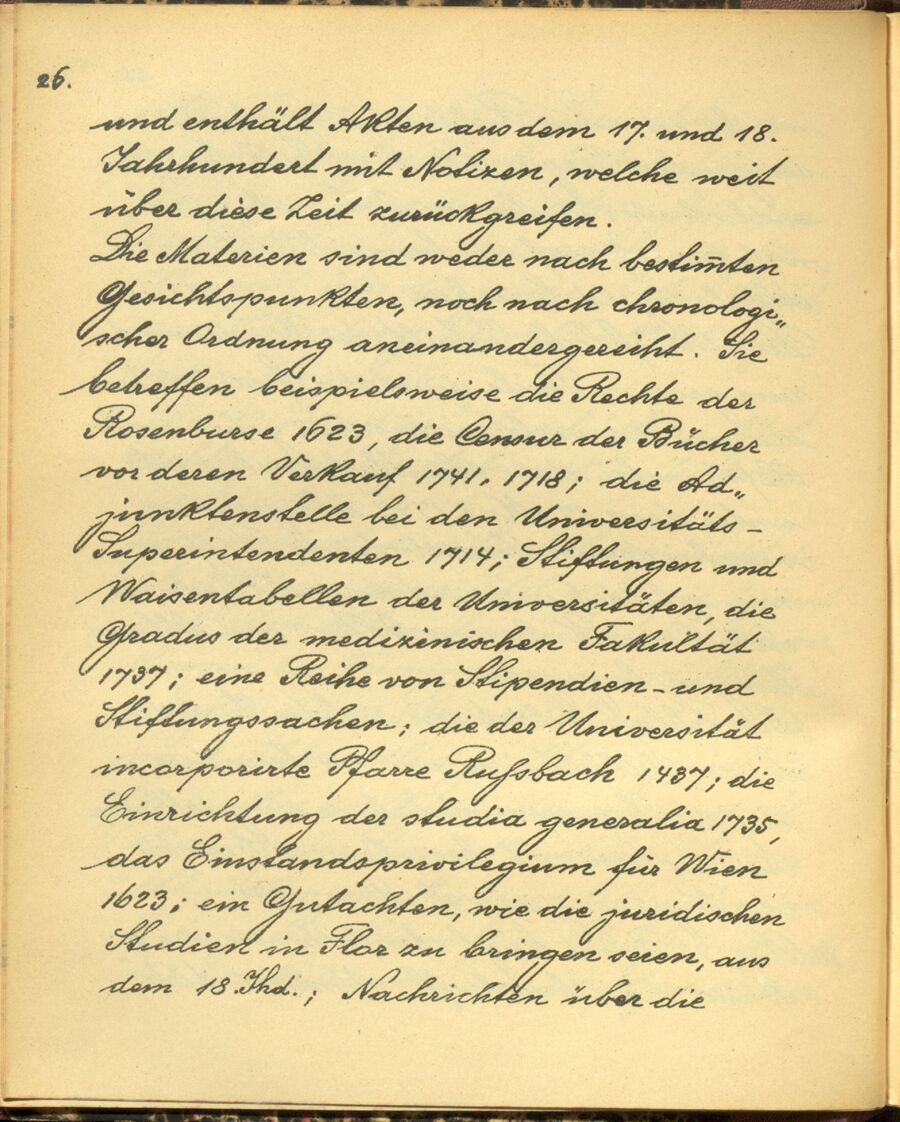 26.
und enthält Akten aus dem 17. und 18.
Jahrhundert mit Notizen, welche weit
über diese Zeit zurückgreifen.
Die Materien sind weder nach bestim̄ten
Gesichtspunkten, noch nach chronologi„
scher Ordnung aneinandergereiht. Sie
betreffen beispielsweise die Rechte der
Rosenburse 1623, die Censur der Bücher
vor deren Verkauf 1741, 1718; die Ad„
junktenstelle bei den Universitäts-
Superintendenten 1714; Stiftungen und
Waisentabellen der Universitäten, die
Gradus der medizinischen Fakultät
1737; eine Reihe von Stipendien- und
Stiftungssachen; die der Universität
incorporirte Pfarre Rußbach 1437; die
Einrichtung der studia generalia 1735,
das Einstandsprivilegium für Wien
1623; ein Gutachten, wie die juridischen
Studien in Flor zu bringen seien, aus
dem 18. Jhd.; Nachrichten über die